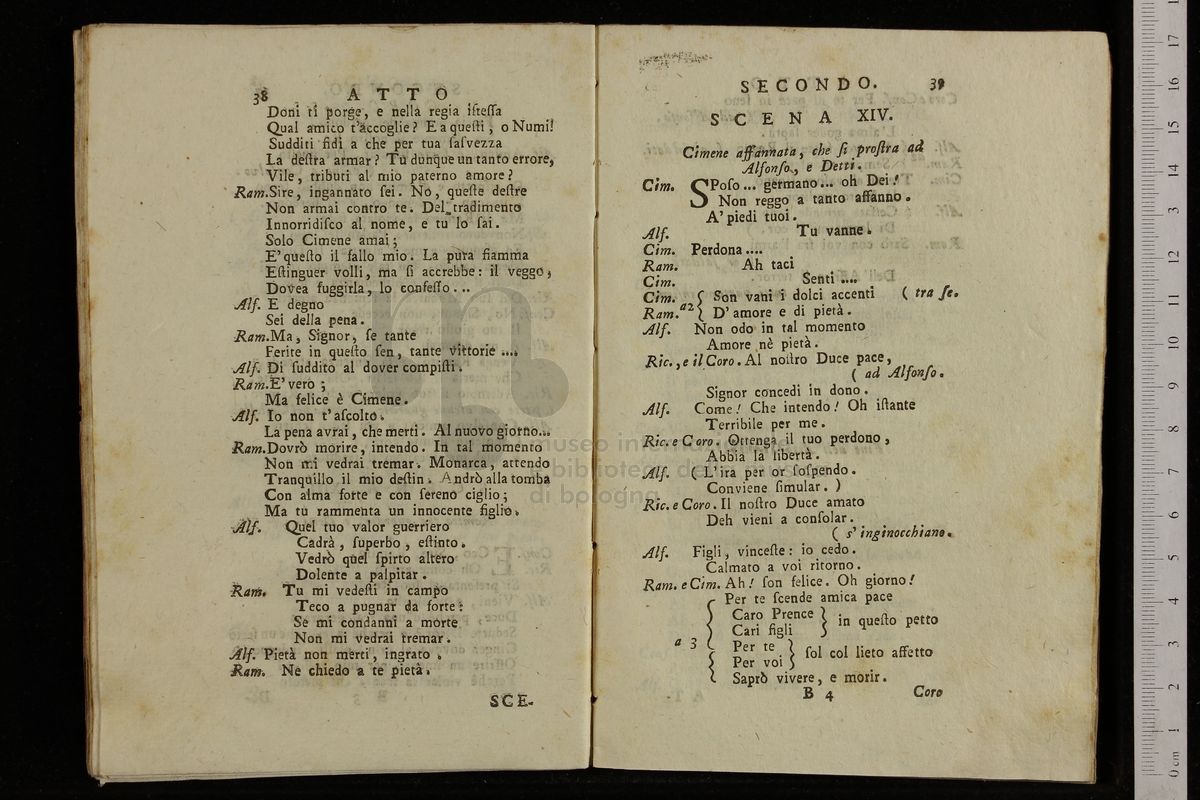 38 A T T O
Doni ti porge, e nella regia iſteſſa
Qual amico t'accoglie? E a queſti, o Numi!
Sudditi fidi a che per tua ſalvezza
La deſtra armar? Tu dunque un tanto errore,
Vile, tributi al mio paterno amore?
Ram. Sire, ingannato ſei. No, queſte deſtre
Non armai contro te. Del tradimento
Innorridiſco al nome, e tu lo ſai.
Solo Cimene amai;
E' queſto il fallo mio. La pura fiamma
Eſtinguer volli, ma ſi accrebbe: il veggo,
Dovea fuggirla, lo confeſſo...
Alf. E degno
Sei della pena.
Ram. Ma, Signor, ſe tante
Ferite in queſto ſen, tante vittorie ....
Alf. Di ſuddito al dover compiſti.
Ram. E' vero;
Ma felice è Cimene.
Alf. Io non t'aſcolto.
La pena avrai, che merti. Al nuovo giorno...
Ram. Dovrò morire, intendo. In tal momento
Non mi vedrai tremar. Monarca, attendo
Tranquillo il mio deſtin. Andrò alla tomba
Con alma forte e con ſereno ciglio;
Ma tu rammenta un innocente figlio.
Alf. Quel tuo valor guerriero
Cadrà, ſuperbo, eſtinto.
Vedrò quel ſpirto altero
Dolente a palpitar.
Ram. Tu mi vedeſti in campo
Teco a pugnar da forte:
Se mi condanni a morte
Non mi vedrai tremar.
Alf. Pietà non merti, ingrato.
Ram. Ne chiedo a te pietà.
SCE-
SECONDO. 39
SCENA XIV.
Cimene affannata, che ſi proſtra ad
Alfonſo, e Detti.
Cim. SPoſo... germano... oh Dei!
Non reggo a tanto affanno.
A' piedi tuoi.
Alf. Tu vanne.
Cim. Perdona....
Ram. Ah taci
Cim. Senti....
Cim. Son vani i dolci accenti ( tra ſe.
Ram. a2 D' amore e di pietà.
Alf. Non odo in tal momento
Amore nè pietà.
Ric., e il Coro. Al noſtro Duce pace,
( ad Alfonſo.
Signor concedi in dono.
Alf. Come! Che intendo! Oh iſtante
Terribile per me.
Ric. e Coro. Ottenga il tuo perdono,
Abbia la libertà.
Alf. ( L'ira per or ſoſpendo.
Conviene ſimular. )
Ric. e Coro. Il noſtro Duce amato
Deh vieni a conſolar.
( s' inginocchiano.
Alf. Figli, vinceſte: io cedo.
Calmato a voi ritorno.
Ram. e Cim. Ah! ſon felice. Oh giorno!
Per te ſcende amica pace
Caro Prence
Cari figli } in queſto petto
a 3 Per te
Per voi } ſol col lieto affetto
Saprò vivere, e morir.
B 4 Coro
museo inter
biblioteca d
di bologna